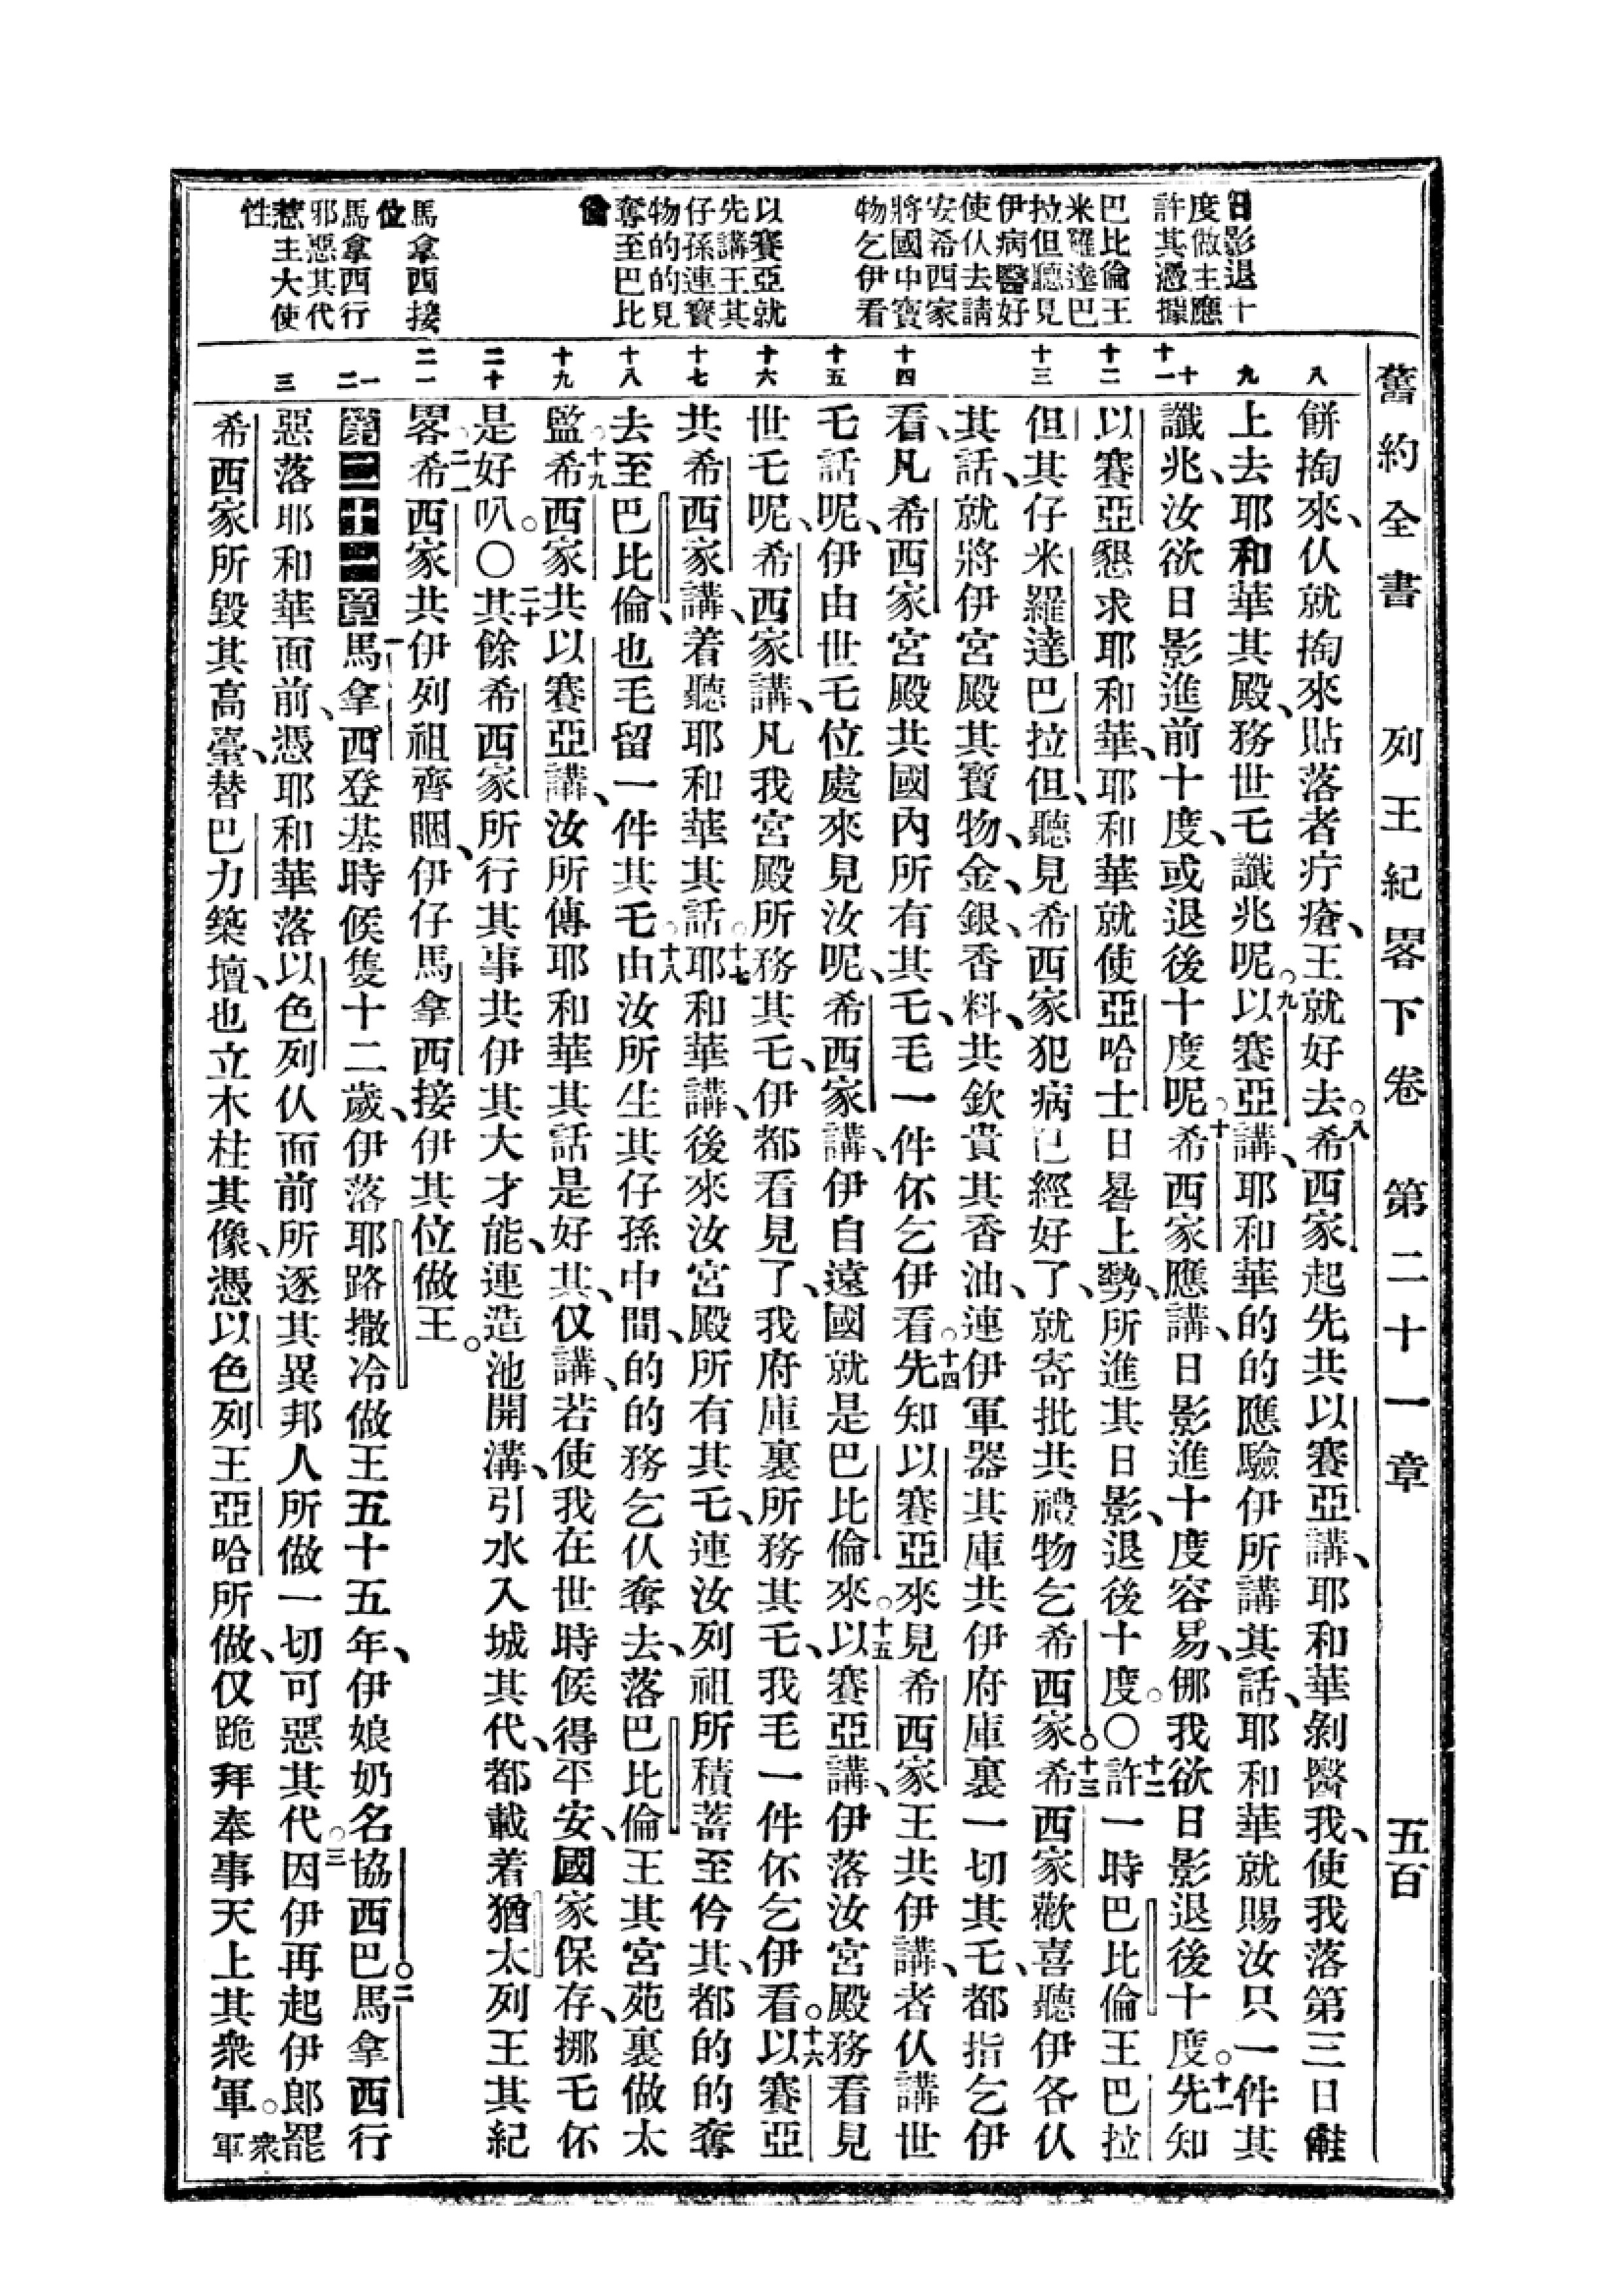 舊約全書 列王紀畧下卷 第二十一章 五百
日影退十
度做主應
許其憑據
巴比倫王
米羅達巴
拉但聽見
伊病醫好
使仸去請
安希西家
將國中寶
物乞伊看
以賽亞就
先講王其
仔孫連寶
物的的見
奪至巴比
倫
馬拿西接
位
馬拿西行
邪惡其代
惹主大使
性
八 九 十 十一 十二 十三 十四 十五 十六 十七 十八 十九 二十 二一 一 二 三
餅掏來、仸就掏來貼落者疔瘡、王就好去。八希西家起先共以賽亞講、耶和華剝醫我、使我落第三日
上去耶和華其殿、務世乇讖兆呢。九以賽亞講、耶和華的的應驗伊所講其話、耶和華就賜汝只一件其
讖兆、汝欲日影進前十度、或退後十度呢。十希西家應講、日影進十度容易、㑚我欲日影退後十度。十一先知
以賽亞懇求耶和華、耶和華就使亞哈士日晷上勢、所進其日影、退後十度。〇十二許一時巴比倫王巴拉
但其仔米羅達巴拉但、聽見希西家犯病已經好了、就寄批共禮物乞希西家。十三希西家歡喜聽伊各仸
其話、就將伊宮殿其寶物、金、銀、香料、共欽貴其香油、連伊軍器其庫共伊府庫裏一切其乇、都指乞伊
看、凡希西家宮殿共國內所有其乇、毛一件伓乞伊看。十四先知以賽亞來見希西家王共伊講、者仸講世
乇話呢、伊由世乇位處來見汝呢、希西家講、伊自遠國就是巴比倫來。十五以賽亞講、伊落汝宮殿務看見
世乇呢、希西家講、凡我宮殿所務其乇、伊都看見了、我府庫裏所務其乇、我毛一件伓乞伊看。十六以賽亞
共希西家講、着聽耶和華其話。十七耶和華講、後來汝宮殿所有其乇、連汝列祖所積蓄至仱其、都的的奪
去至巴比倫、也毛留一件其乇。十八由汝所生其仔孫中間、的的務乞仸奪去、落巴比倫王其宮苑裏做太
監。十九希西家共以賽亞講、汝所傳耶和華其話是好其、仅講、若使我在世時候得平安、國家保存、挪乇伓
是好叭。〇二十其餘希西家所行其事共伊其大才能、連造池開溝、引水入城其代、都載着猶太列王其紀
畧。二一希西家共伊列祖齊䀄、伊仔馬拿西接伊其位做王。
第二十一章一馬拿西登基時候隻十二歲、伊落耶路撒冷做王五十五年、伊娘奶名協西巴。二馬拿西行
惡落耶和華面前、憑耶和華落以色列仸面前所逐其異邦人所做一切可惡其代。三因伊再起伊郎罷
希西家所毀其高臺、替巴力築壇、也立木柱其像、憑以色列王亞哈所做、仅跪拜奉事天上其衆軍。衆軍